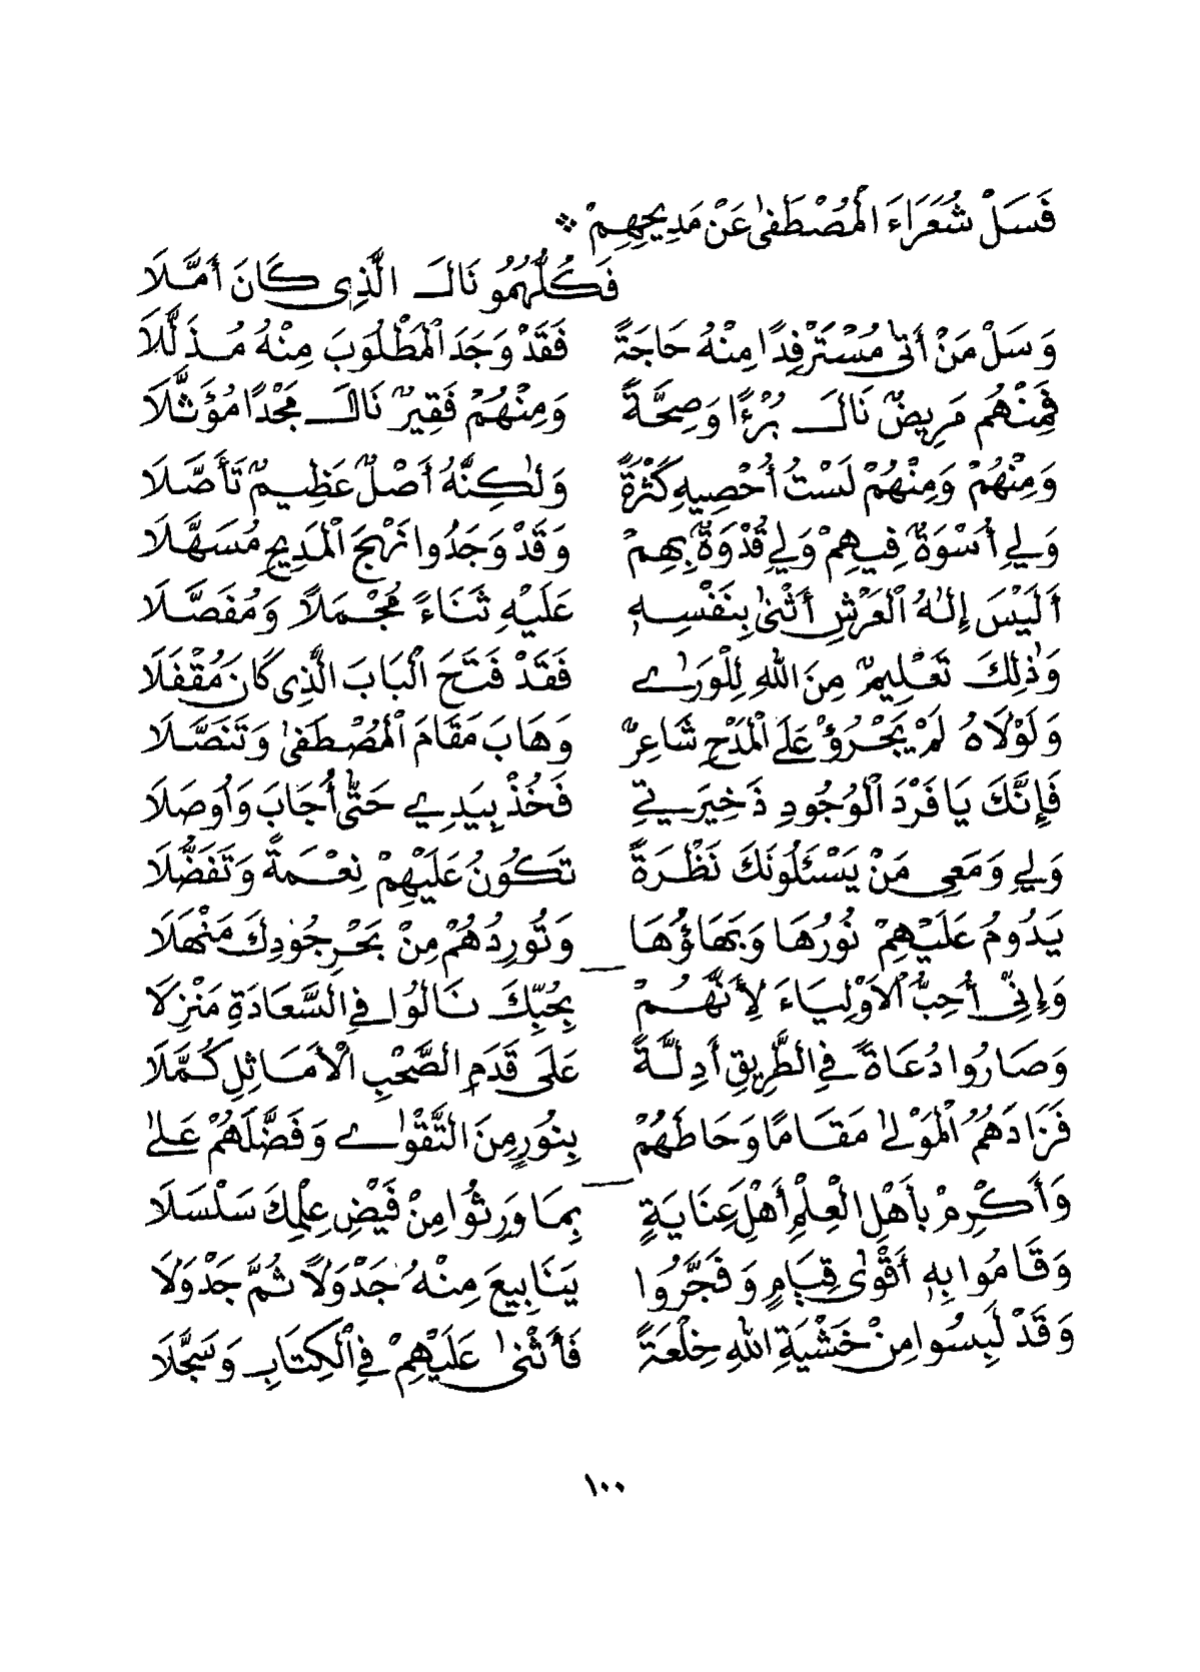 فَسَلْ شُعَرَاءَ الْمُصْطَفىٰ عَنْ مَدِيحِهِمْ ❖
فَكُلُّهُمُو نَالَ الَّذِي كَانَ أَمَّلَا
وَسَلْ مَنْ أَتىٰ مُسْتَرْفِدًا مِنْهُ حَاجَةً فَقَدْ وَجَدَ الْمَطْلُوبَ مِنْهُ مُذَلَّلَا
فَمِنْهُم مَرِيضٌ نَالَ بُرْءًا وَصِحَّةً وَمِنْهُمْ فَقِيرٌ نَالَ مَجْدًا مُؤَثَّلَا
وَمِنْهُمْ وَمِنْهُمْ لَسْتُ أُحْصِيهِ كَثْرَةً وَلٰكِنَّهُ أَصْلٌ عَظِيمٌ تَأَصَّلَا
وَلِي أُسْوَةٌ فِيهِمْ وَلِي قُدْوَةٌ بِهِمْ وَقَدْ وَجَدُوا نَهْجَ الْمَدِيحِ مُسَهَّلَا
أَلَيْسَ إِلٰهُ الْعَرْشِ أَثْنىٰ بِنَفْسِهِ عَلَيْهِ ثَنَاءً مُجْمَلًا وَمُفَصَّلَا
وَذٰلِكَ تَعْلِيمٌ مِنَ اللهِ لِلْوَرٰى فَقَدْ فَتَحَ الْبَابَ الَّذِي كَانَ مُقْفَلَا
وَلَوْلَاهُ لَمْ يَجْرُؤْ عَلَى الْمَدْحِ شَاعِرٌ وَهَابَ مَقَامَ الْمُصْطَفىٰ وَتَنَصَّلَا
فَإِنَّكَ يَا فَرْدَ الْوُجُودِ ذَخِيرَتِي فَخُذْ بِيَدِي حَتّىٰ أُجَابَ وَأُوصَلَا
وَلِي وَمَعِي مَنْ يَسْئَلُونَكَ نَظْرَةً تَكُونُ عَلَيْهِمْ نِعْمَةً وَتَفَضُّلَا
يَدُومُ عَلَيْهِمْ نُورُهَا وَبَهَاؤُهَا وَتُورِدُهُمْ مِنْ بَحْرِ جُودِكَ مَنْهَلَا
وَإِنِّي أُحِبُّ الْأَوْلِيَاءَ لِأَنَّهُمْ بِحُبِّكَ نَالُوا فِي السَّعَادَةِ مَنْزِلَا
وَصَارُوا دُعَاةً فِي الطَّرِيقِ أَدِلَّةً عَلَى قَدَمِ الصَّحْبِ الْأَمَاثِلِ كُمَّلَا
فَزَادَهُمُ الْمَوْلىٰ مَقَامًا وَحَاطَهُمْ بِنُورٍ مِنَ التَّقْوٰى وَفَضَّلَهُمْ عَلىٰ
وَأَكْرِمْ بِأَهْلِ الْعِلْمِ أَهْلَ عِنَايَةٍ بِمَا وَرِثُوا مِنْ فَيْضِ عِلْمِكَ سَلْسَلَا
وَقَامُوا بِهِ أَقْوٰى قِيَامٍ وَفَجَّرُوا يَنَابِيعَ مِنْهُ جَدْوَلًا ثُمَّ جَدْوَلَا
وَقَدْ لَبِسُوا مِنْ خَشْيَةِ اللهِ خِلْعَةً فَأَثْنىٰ عَلَيْهِمْ فِي الْكِتَابِ وَسَجَّلَا
١٠٠